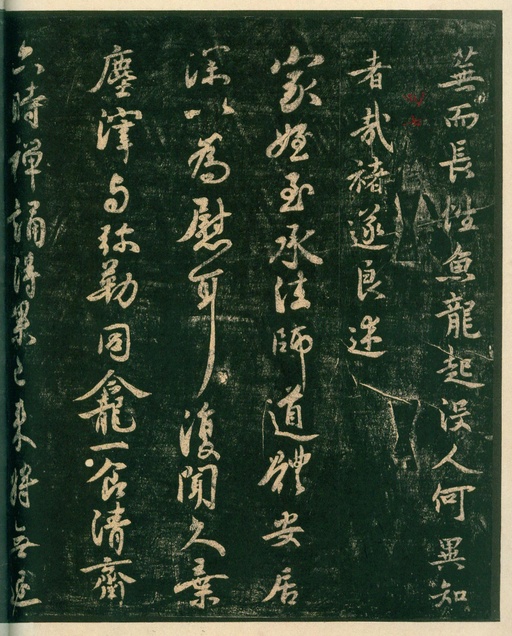 蕪而長性魚龍起沒人何異知
者哉褚遂良述
家姪至承法師道體安居
深以為慰耳復聞久棄
塵滓与弥勒同龕一食清齋
六時禪誦得果已來將無退